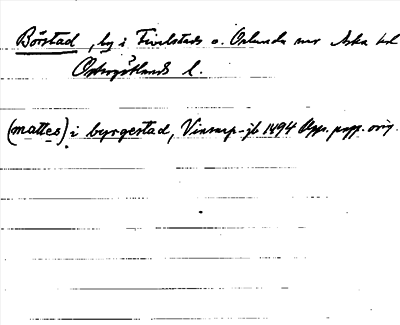 Börstad, by i Fivelstads o. Orlunda snr Aska hd
Östergötlands l.
(mattes) i byrgestad, Vinsarp-jb 1494 Upps. papp. orig.